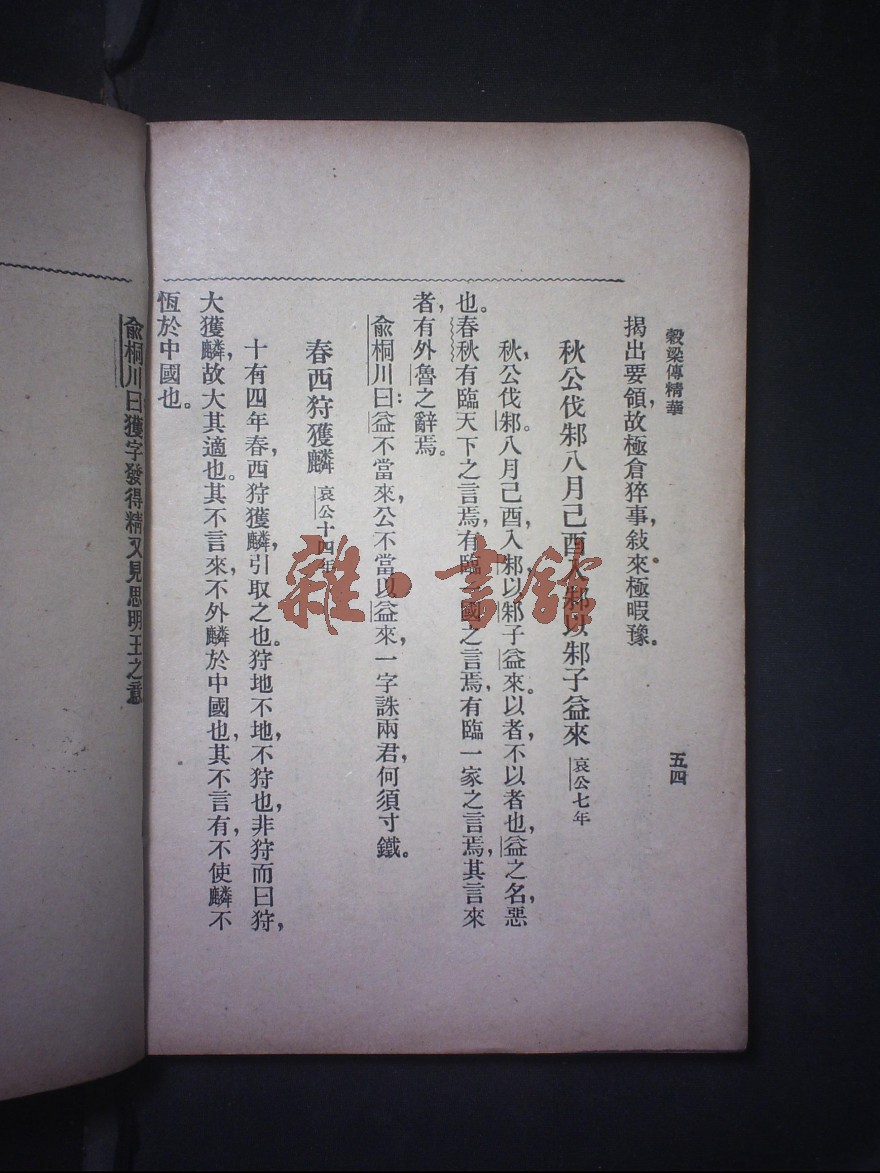 穀梁傳精華
五四
揭出要領，故極倉猝事，敍來極暇豫。
秋公伐邾八月己酉入邾以邾子益來 哀公七年
秋，公伐邾。八月己酉，入邾，以邾子益來。以者，不以者也，益之名，惡
也。春秋有臨天下之言焉，有臨一國之言焉，有臨一家之言焉，其言來
者，有外魯之辭焉。
兪桐川曰：益不當來，公不當以益來，一字誅兩君，何須寸鐵。
春西狩獲麟 哀公十四年
十有四年春，西狩獲麟，引取之也。狩地不地，不狩也，非狩而曰狩，
大獲麟，故大其適也。其不言來，不外麟於中國也，其不言有，不使麟不
恆於中國也。
兪桐川曰獲字發得精又見思明王之意
雜·書館